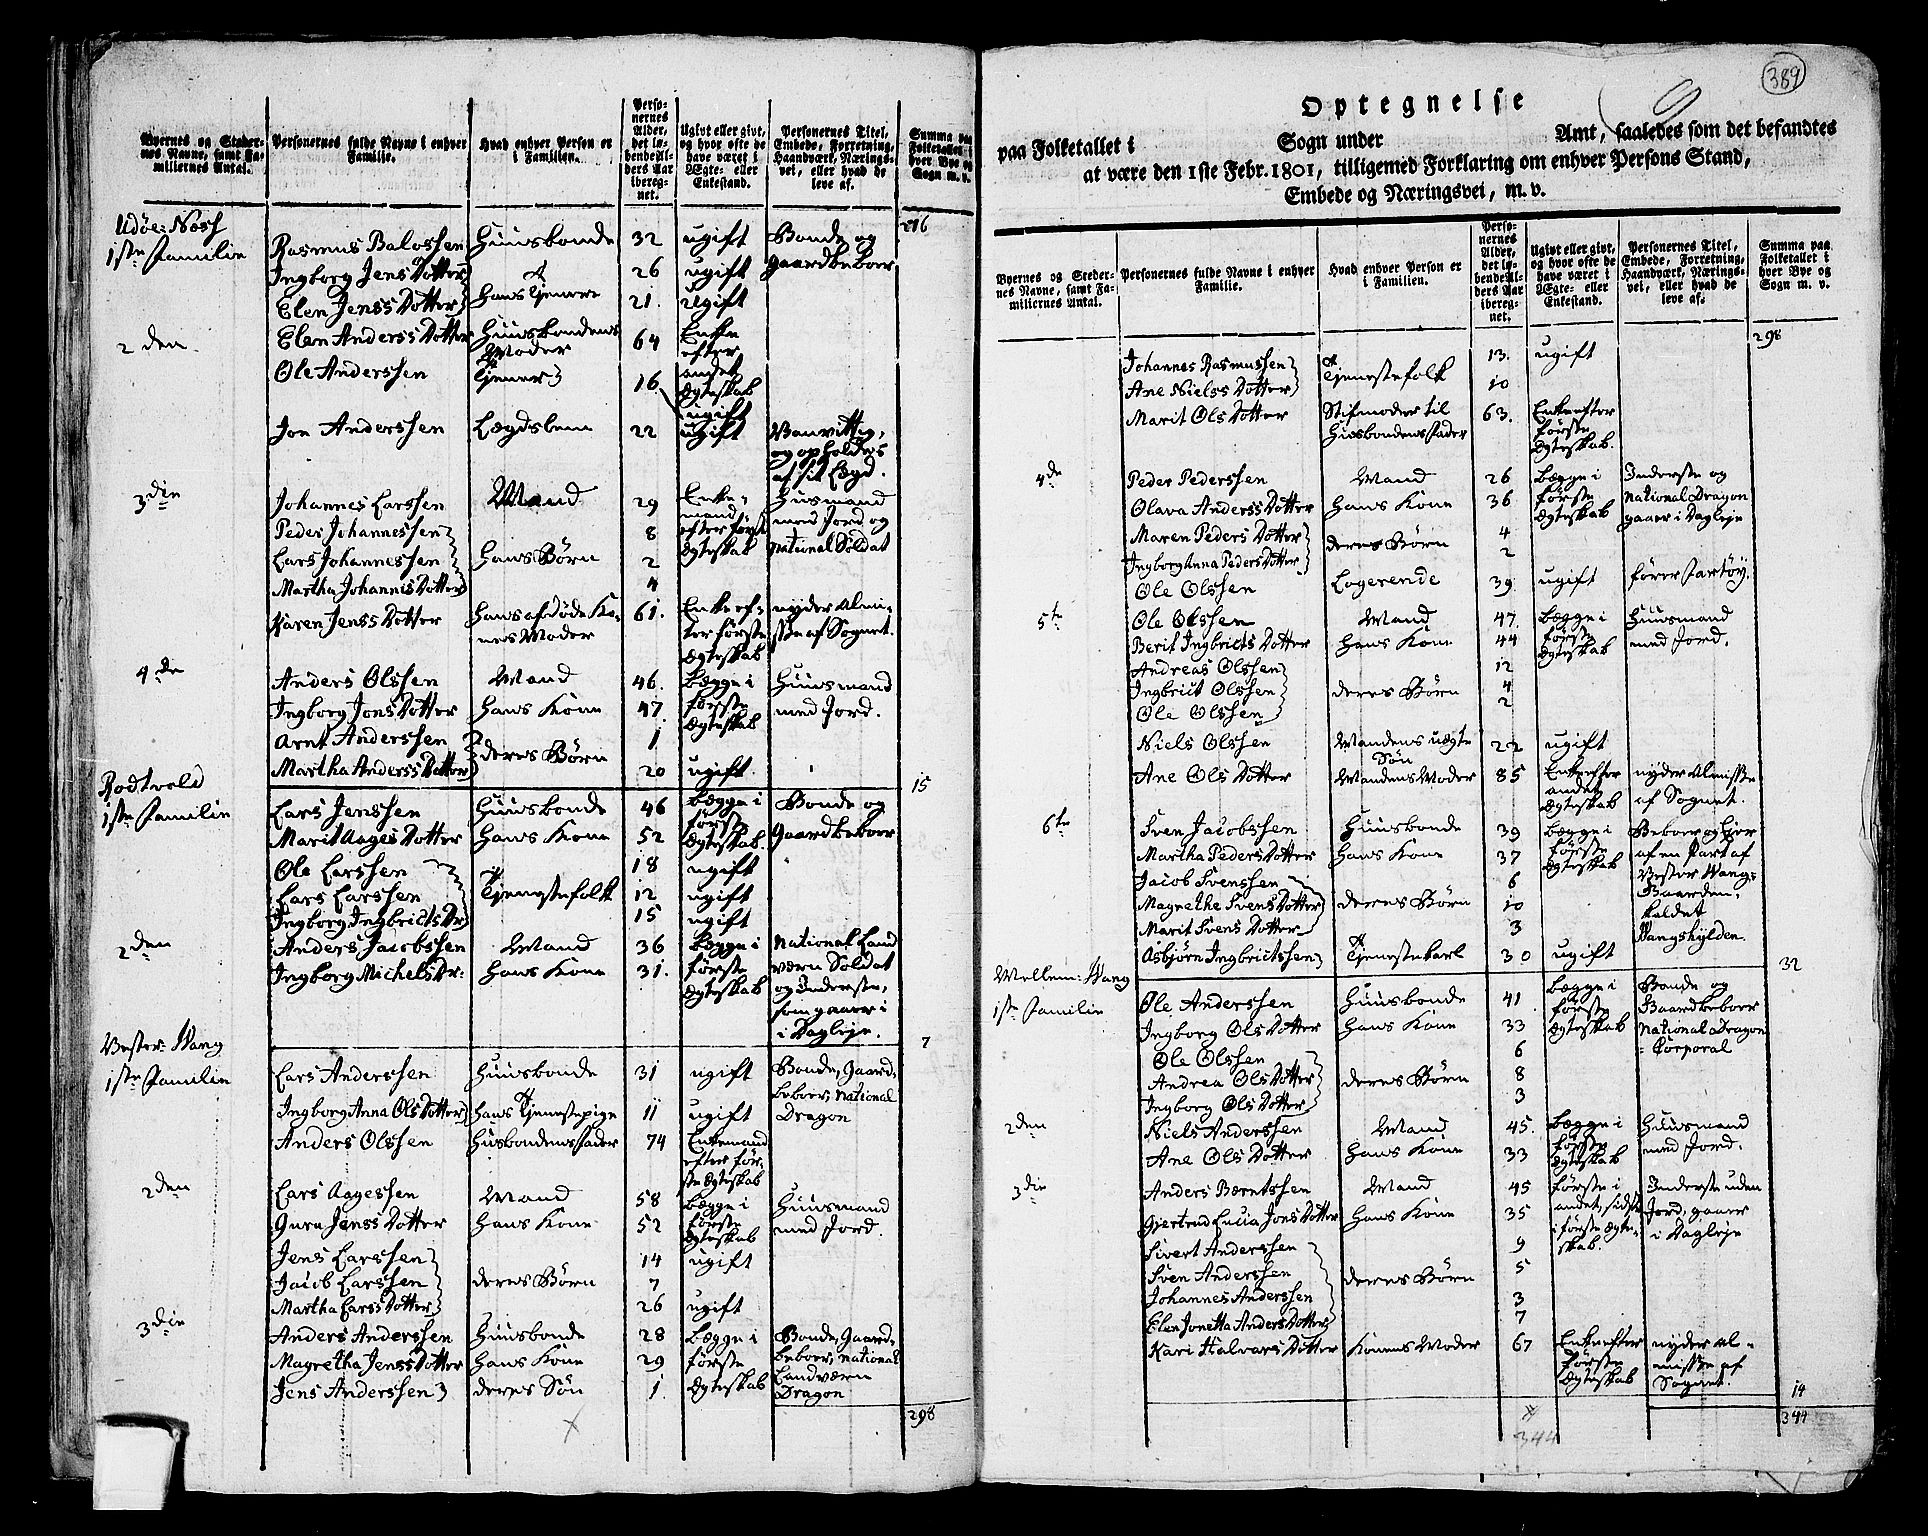 Byernes og Steder-
nes Navne, samt Fa-
miliernes Antal.
Personernes fulde Navne i enhver
Familie.
Hvad enhver Person er
i Familien.
Perso-
nernes
Alder,
det lø-
bende Al-
ders Aar
ibereg-
net.
Ugivt eller givt,
og hvor ofte de
have været i
Ægte- eller
Enkestand.
Personernes Titel,
Embede, Forretning,
Haandværk, Nærings-
vei, eller hvad de
leve af.
Summa paa
Folketallet i
hver Bye og
Sogn m. v.
Udøe: Næss 216
1ste Familie Rasmus Balossen Huusbonde 32 ugift Bonde og
Ingborg Jens Dotter 26 ugift Gaardbeboer
Elen Jenss Dotter hans tjenere 21. ugift
2den Elen Anderss Dotter Huusbondens Moder 64 Enke efter andet Ægteskab
Ole Anderssen Tjener 16 ugift
Jon Anderssen Lægdslem 22 ugift Vanvittig, og opholdes af sit Lægd.
3die Johannes Larssen Mand 29 Enke- Husmand
Peder Johannessen 8 mand med Jord og
Lars Johannessen hans Børn 2 efter først Ægteskab national Soldat
Martha Johannis Dotter 4
Karen Jenss Dotter hans afdøde Ko- 61. Enke ef- nyder Almi-
nes Moder ter første Ægteskab sse af Sognet.
4de Anders Olssen Mand 46. Begge i Huusmand
Ingborg Jons Dotter hans Kone 47 første Ægteskab med Jord.
Arnt Anderssen 1
Martha Anderss Dotter deres Børn 20 ugift 15
Rodtvold
1ste Familie Lars Jenssen Huusbonde 46 Begge i Bonde og
Marit Aages Dotter hans Kone 52 første Ægteskab. Gaardbeboer
Ole Larssen 18 ugift
Lars Larssen Tjenestefolk 12 ugift
Ingborg Ingbricts Dr 15 ugift
2den Anders Jacobssen Mand 36 Begge i National Land
Ingborg Michels Dr: hans Kone 31. første Ægteskab værn Soldat
og Inderste,
som gaaer i
i Dagleje. 7
Vester: Wang
1ste Familie Lars Anderssen Huusbonde 31 ugift Bonde, Gaard-
beboer, national
Ingborg Anna Ols Dotter hans Tjenestepige 11 ugift Dragon
Anders Olssen Husbondens Fader 74 Enkemand
efter før-
ste Ægteskab
2den Lars Aagessen Mand 58 Begge i Huusmand
Guru Jenss Dotter hans Kone 52 første Ægteskab med Jord.
Jens Larssen 14 ugift
Jacob Larssen deres Børn 7
Martha Larss Dotter 26 ugift
3die Anders Anderssen Huusbonde 28 Begge i Bonde, Gaard-
Magretha Jenss Dotter hans Kone 29 første beboer, national
Jens Anderssen deres Søn 1. Ægteskab Landværn
Dragon
298
389
Optegnelse
paa Folketallet i Sogn under Amt, saaledes som det befandtes
at være den 1ste Febr. 1801, tilligemed Forklaring om enhver Persons Stand,
Embede og Næringsvei, m. v.
Byernes og Steder-
nes Navne, samt Fa-
miliernes Antal.
Personernes fulde Navne i enhver
Familie.
Hvad enhver Person er
i Familien.
Perso-
nernes
Alder,
det lø-
bende Al-
ders Aar
ibereg-
net.
Ugivt eller givt,
og hvor ofte de
have været i
Ægte- eller
Enkestand.
Personernes Titel,
Embede, Forretning,
Haandværk, Nærings-
vei, eller hvad de
leve af.
Summa paa
Folketallet i
hver Bye og
Sogn m. v.
298
Johannes Rasmussen 13. ugift
Ane Nielss Dotter Tjenestefolk 10
Marit Ols Dotter Stifmoder til 63. Enke efter
Husbondens Fader første
Ægteskab.
4de Peder Pederssen Mand 26 Begge i Inderste og
Olava Anderss Dotter hans Kone 36 første Ægteskab National Dragon
Maren Peders Dotter 4 gaaer i Dagleje
Ingborg Anna Peders Dotter deres Børn 2
Ole Olssen Logerende 39 ugift fører Fartøy.
5te Ole Olssen Mand 47. Begge i Huusmand
Berit Ingbricts Dotter hans Kone 44 første Ægteskab med Jord.
Andreas Olssen 12
Ingbrict Olssen deres Børn 4
Ole Olssen 2
Niels Olssen Mandens uægte Søn 22 ugift
Ane Ols Dotter Mandens Moder 85 Enke efter nyder Almisse
andet Ægteskab af Sognet.
6te Sven Jacobssen Huusbonde 39 Begge i Beboer og Ejer
Martha Peders Dotter hans Kone 37 første Ægteskab af en Part af
Jacob Svenssen 6 Vester Wang-
Magrethe Svens Dotter deres Børn 10 Gaarden,
Marit Svens Dotter 3 kaldet
Asbjørn Ingbrictssen Tjenestekarl 30 ugift Wangshylden.
32
Mellem: Wang
1ste Familie Ole Anderssen Huusbonde 41 Begge i Bonde og
Ingborg Ols Dotter hans Kone 33 første Ægteskab Gaardbeboer
Ole Olssen 6 National Dragon
Andrea Ols Dotter deres Børn 8 Corporal
Ingborg Ols Dotter 3
2den Niels Anderssen Mand 45. Begge i Huusmand
Ane Ols Dotter hans Kone 33 første Ægteskab med Jord.
3die Anders Bærntssen Mand 45 første i Inderste uden
Gjertrud Lucia Jons Dotter hans Kone 35 andet, sidste Jord, gaaer
Sivert Anderssen 9 i første Ægte- i Dagleje
Sven Anderssen deres Børn 5 skab.
Johannes Anderssen 3
Elen Jonetta Anders Dotter 7
Kari Halvars Dotter Konens Moder 67 Enke efter nyder Al-
første misse af
Ægteskab Sognet.
14
344
344